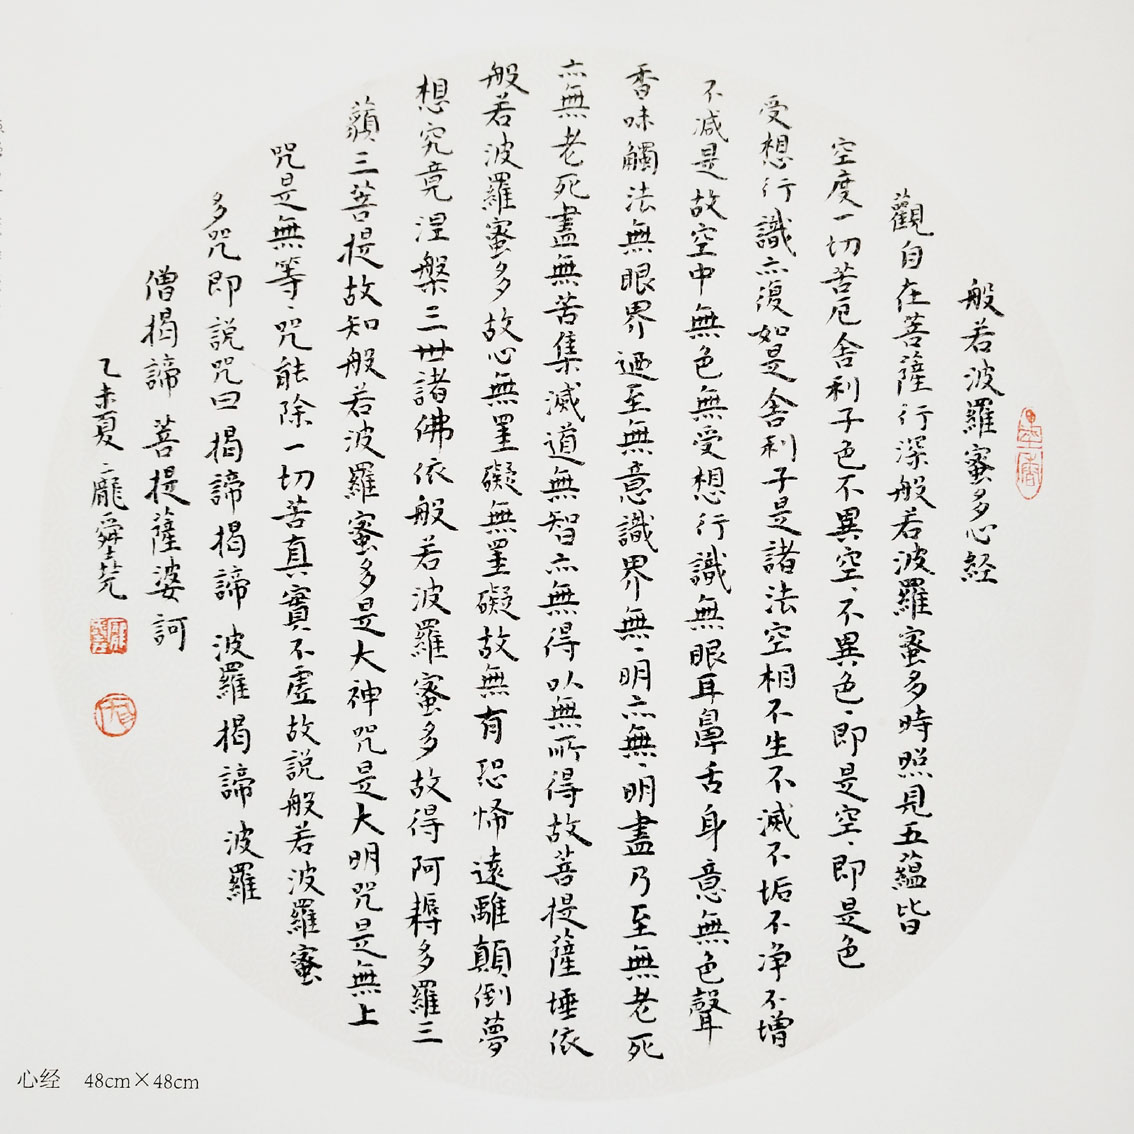 般若波羅蜜多心経
觀自在菩薩行深般若波羅蜜多時照見五蘊皆
空度一切苦厄舍利子色不異空、不異色、即是空、即是色
受想行識亦復如是舍利子是諸法空相不生不滅不垢不净不增
不减是故空中無色無受想行識無眼耳鼻舌身意無色聲
香味觸法無眼界迺至無意識界無、明亦無、明盡乃至無老死
亦無老死盡無苦集滅道無智亦無得以無所得故菩提薩埵依
般若波羅蜜多故心無罣礙無罣礙故無有恐怖遠離顛倒夢
想究竟涅槃三世諸佛依般若波羅蜜多故得阿耨多羅三
藐三菩提故知般若波羅蜜多是大神咒是大明咒是無上
咒是無等、咒能除一切苦真實不虛故説般若波羅蜜
多咒即説咒曰揭諦揭諦 波羅揭諦 波羅
僧揭諦 菩提薩婆訶
乙未夏 龐舜
心经 48cm×48cm